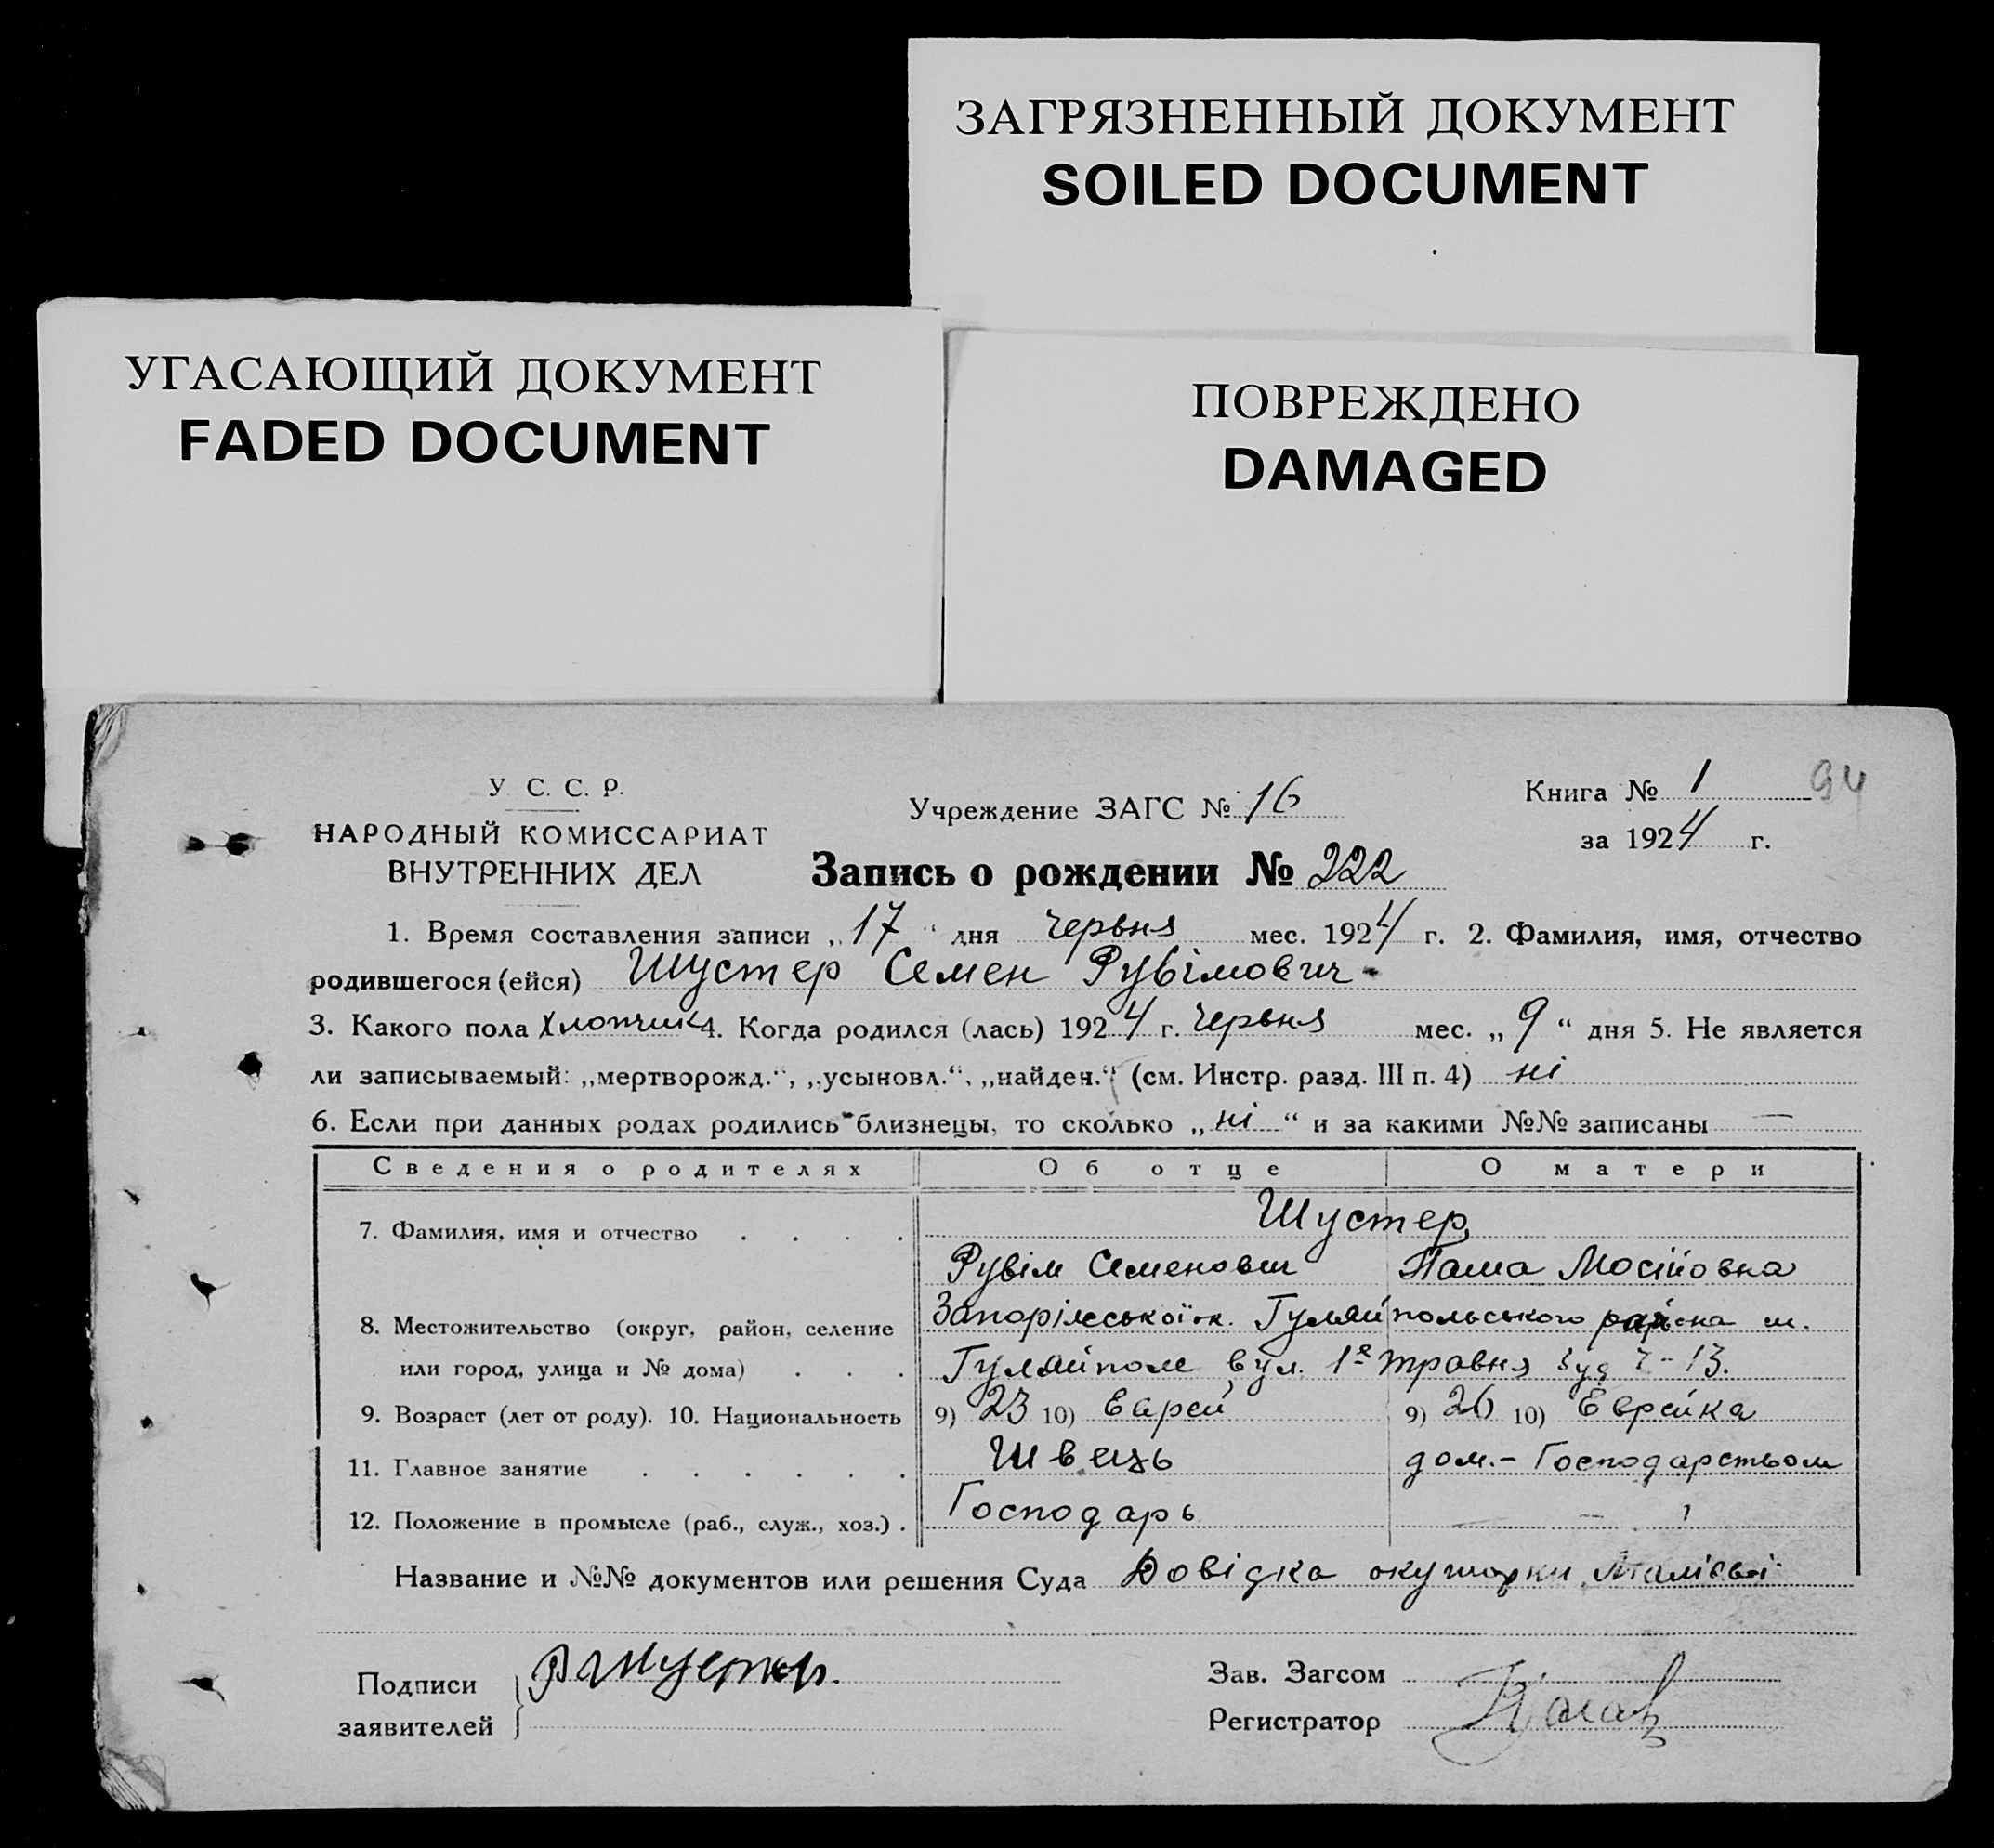 ЗАГРЯЗНЕННЫЙ ДОКУМЕНТ
SOILED DOCUMENT
УГАСАЮЩИЙ ДОКУМЕНТ
FADED DOCUMENT
ПОВРЕЖДЕНО
DAMAGED
У. С. С. Р.
НАРОДНЫЙ КОМИССАРИАТ
ВНУТРЕННИХ ДЕЛ
Учреждение ЗАГС № 16
Книга № 1 94
за 1924 г.
Запись о рождении № 222
1. Время составления записи „17“ дня червня мес. 1924 г. 2. Фамилия, имя, отчество
родившегося (ейся) Шустер Семен Рувімович
3. Какого пола хлопчик 4. Когда родился (лась) 1924 г. червня мес. „9“ дня 5. Не является
ли записываемый: „мертворожд.“, „усыновл.“, „найден.“ (см. Инстр. разд. III п. 4) ні
6. Если при данных родах родились близнецы, то сколько „ні“ и за какими №№ записаны —
Сведения о родителях Об отце О матери
7. Фамилия, имя и отчество . . . . Шустер
Рувім Семенович Паша Мосійовна
8. Местожительство (округ, район, селение Запоріжської ок. Гуляйпольського района м.
или город, улица и № дома) . . . Гуляйполе вул. 1е травня 13.
9. Возраст (лет от роду). 10. Национальность 9) 23 10) Еврей 9) 26 10) Еврейка
11. Главное занятие . . . . . . Швець дом.- Господарством
12. Положение в промысле (раб., служ., хоз.) . Господарь —
Название и №№ документов или решения Суда Довідка акушорки
Подписи
заявителей
Р Шустер.
Зав. Загсом
Регистратор